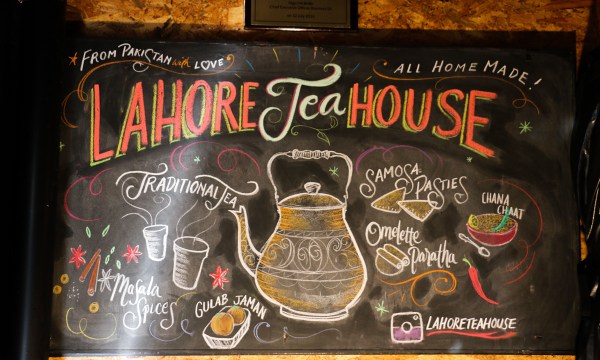 FROM PAKISTAN with LOVE
ALL HOME MADE!
LAHORE Tea HOUSE
TRADITIONAL TEA
SAMOSA & PASTIES
CHANA
CHAAT
Omelette
Paratha
Masala
Spices
GULAB JAMAN
LAHORETEAHOUSE